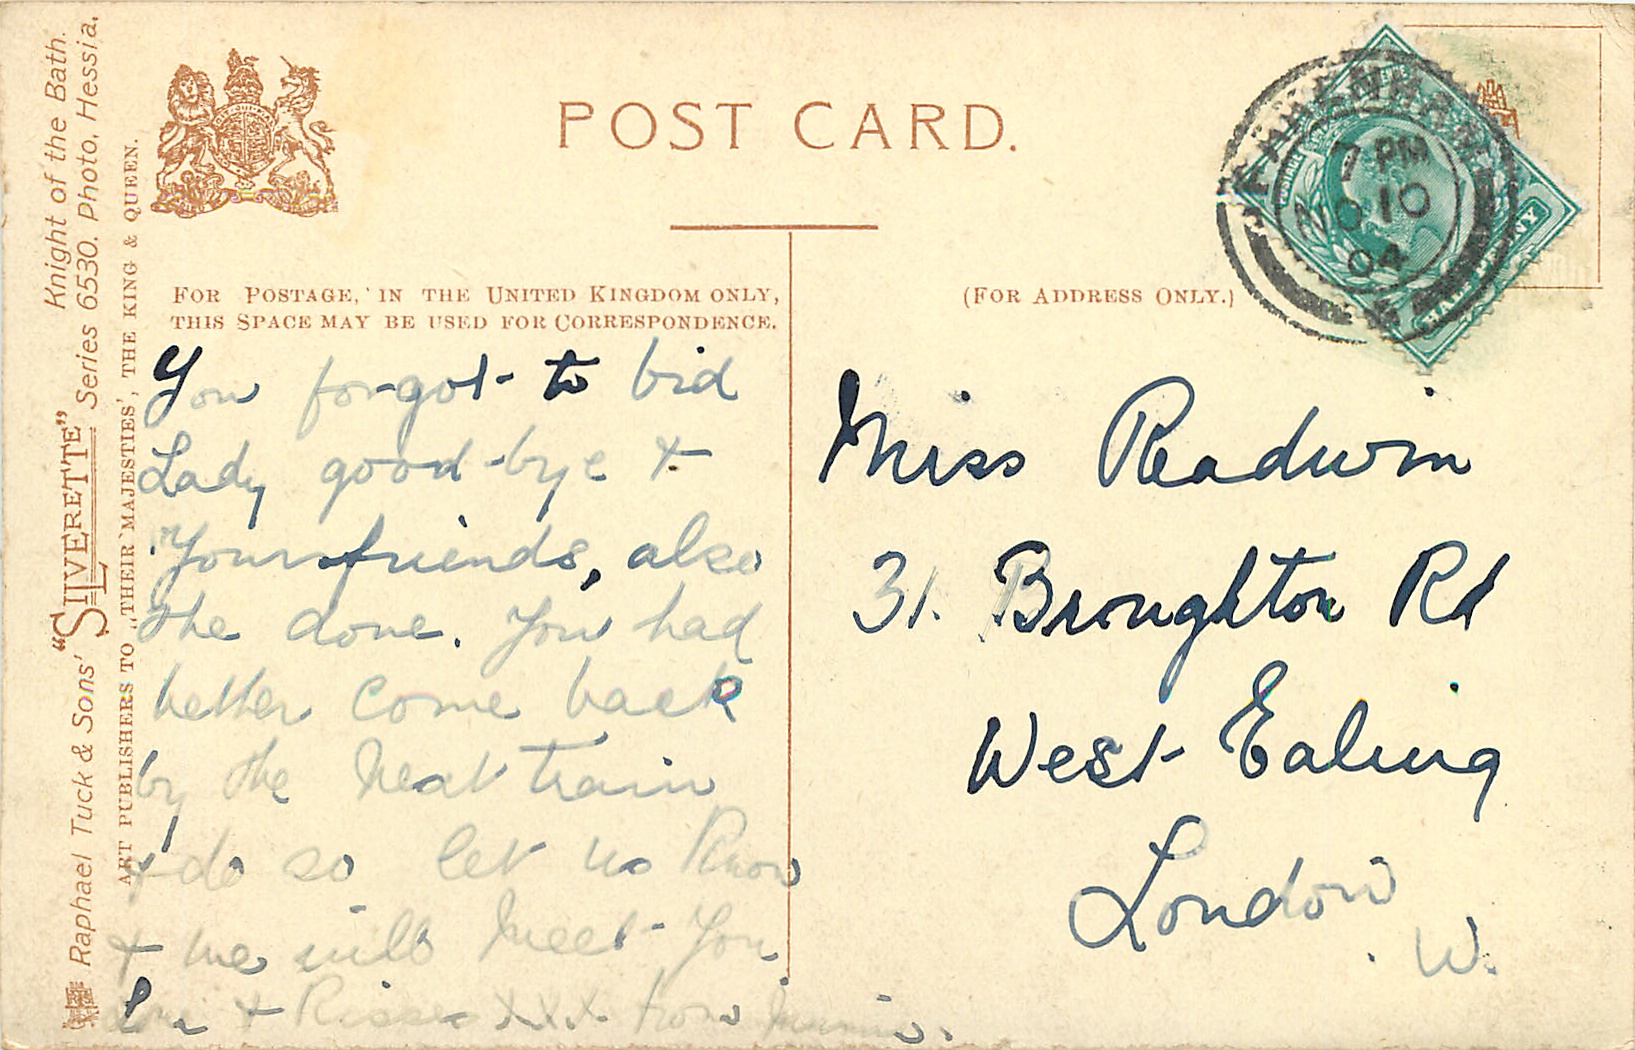 Knight of the Bath.
Raphael Tuck & Sons' "SILVERETTE" Series 6530. Photo, Hessia.
ART PUBLISHERS TO „THEIR MAJESTIES', THE KING & QUEEN.
POST CARD.
FOR POSTAGE, IN THE UNITED KINGDOM ONLY,
THIS SPACE MAY BE USED FOR CORRESPONDENCE.
(FOR ADDRESS ONLY.)
FAKENHAM
7 PM
NO 10
04
POSTAGE
HALFPENNY
You forgot to bid
Lady good-bye &
Your friends, also
the done. You had
better come back
by the next train
& do so let us know
& we will meet you
Love & Kisses XXX from
Miss Readwin
31. Broughton Rd
West Ealing
London
W.